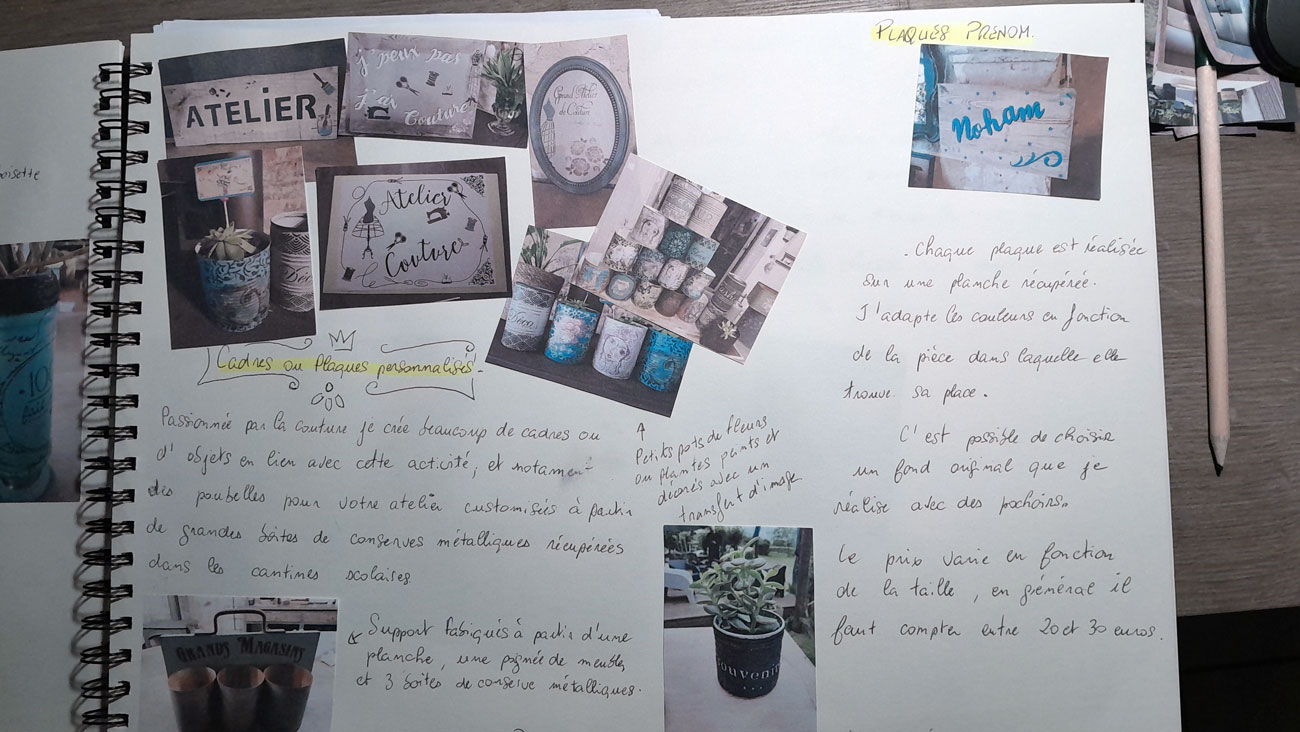 oisette
ATELIER
j'peux pas
J'ai
Couture
Grand Atelier
de Couture
Atelier
Couture
Déco
Cadres ou Plaques personnalisés.
Passionnée par la couture je crée beaucoup de cadres ou
d'objets en lien avec cette activité, et notament
des poubelles pour votre atelier customisées à partir
de grandes boîtes de conserves métalliques récupérées
dans les cantines scolaires
Petits pots de fleurs
ou plantes peints et
décorés avec un
transfert d'image
GRANDS MAGASINS
Support fabriqués à partir d'une
planche, une poignée de meubles
et 3 boîtes de conserve métalliques.
Souvenir
PLAQUES PRÉNOM.
Noham
. Chaque plaque est réalisée
sur une planche récupérée.
J'adapte les couleurs en fonction
de la pièce dans laquelle elle
trouve sa place.
C'est possible de choisir
un fond original que je
réalise avec des pochoirs.
Le prix varie en fonction
de la taille, en général il
faut compter entre 20 et 30 euros.
10